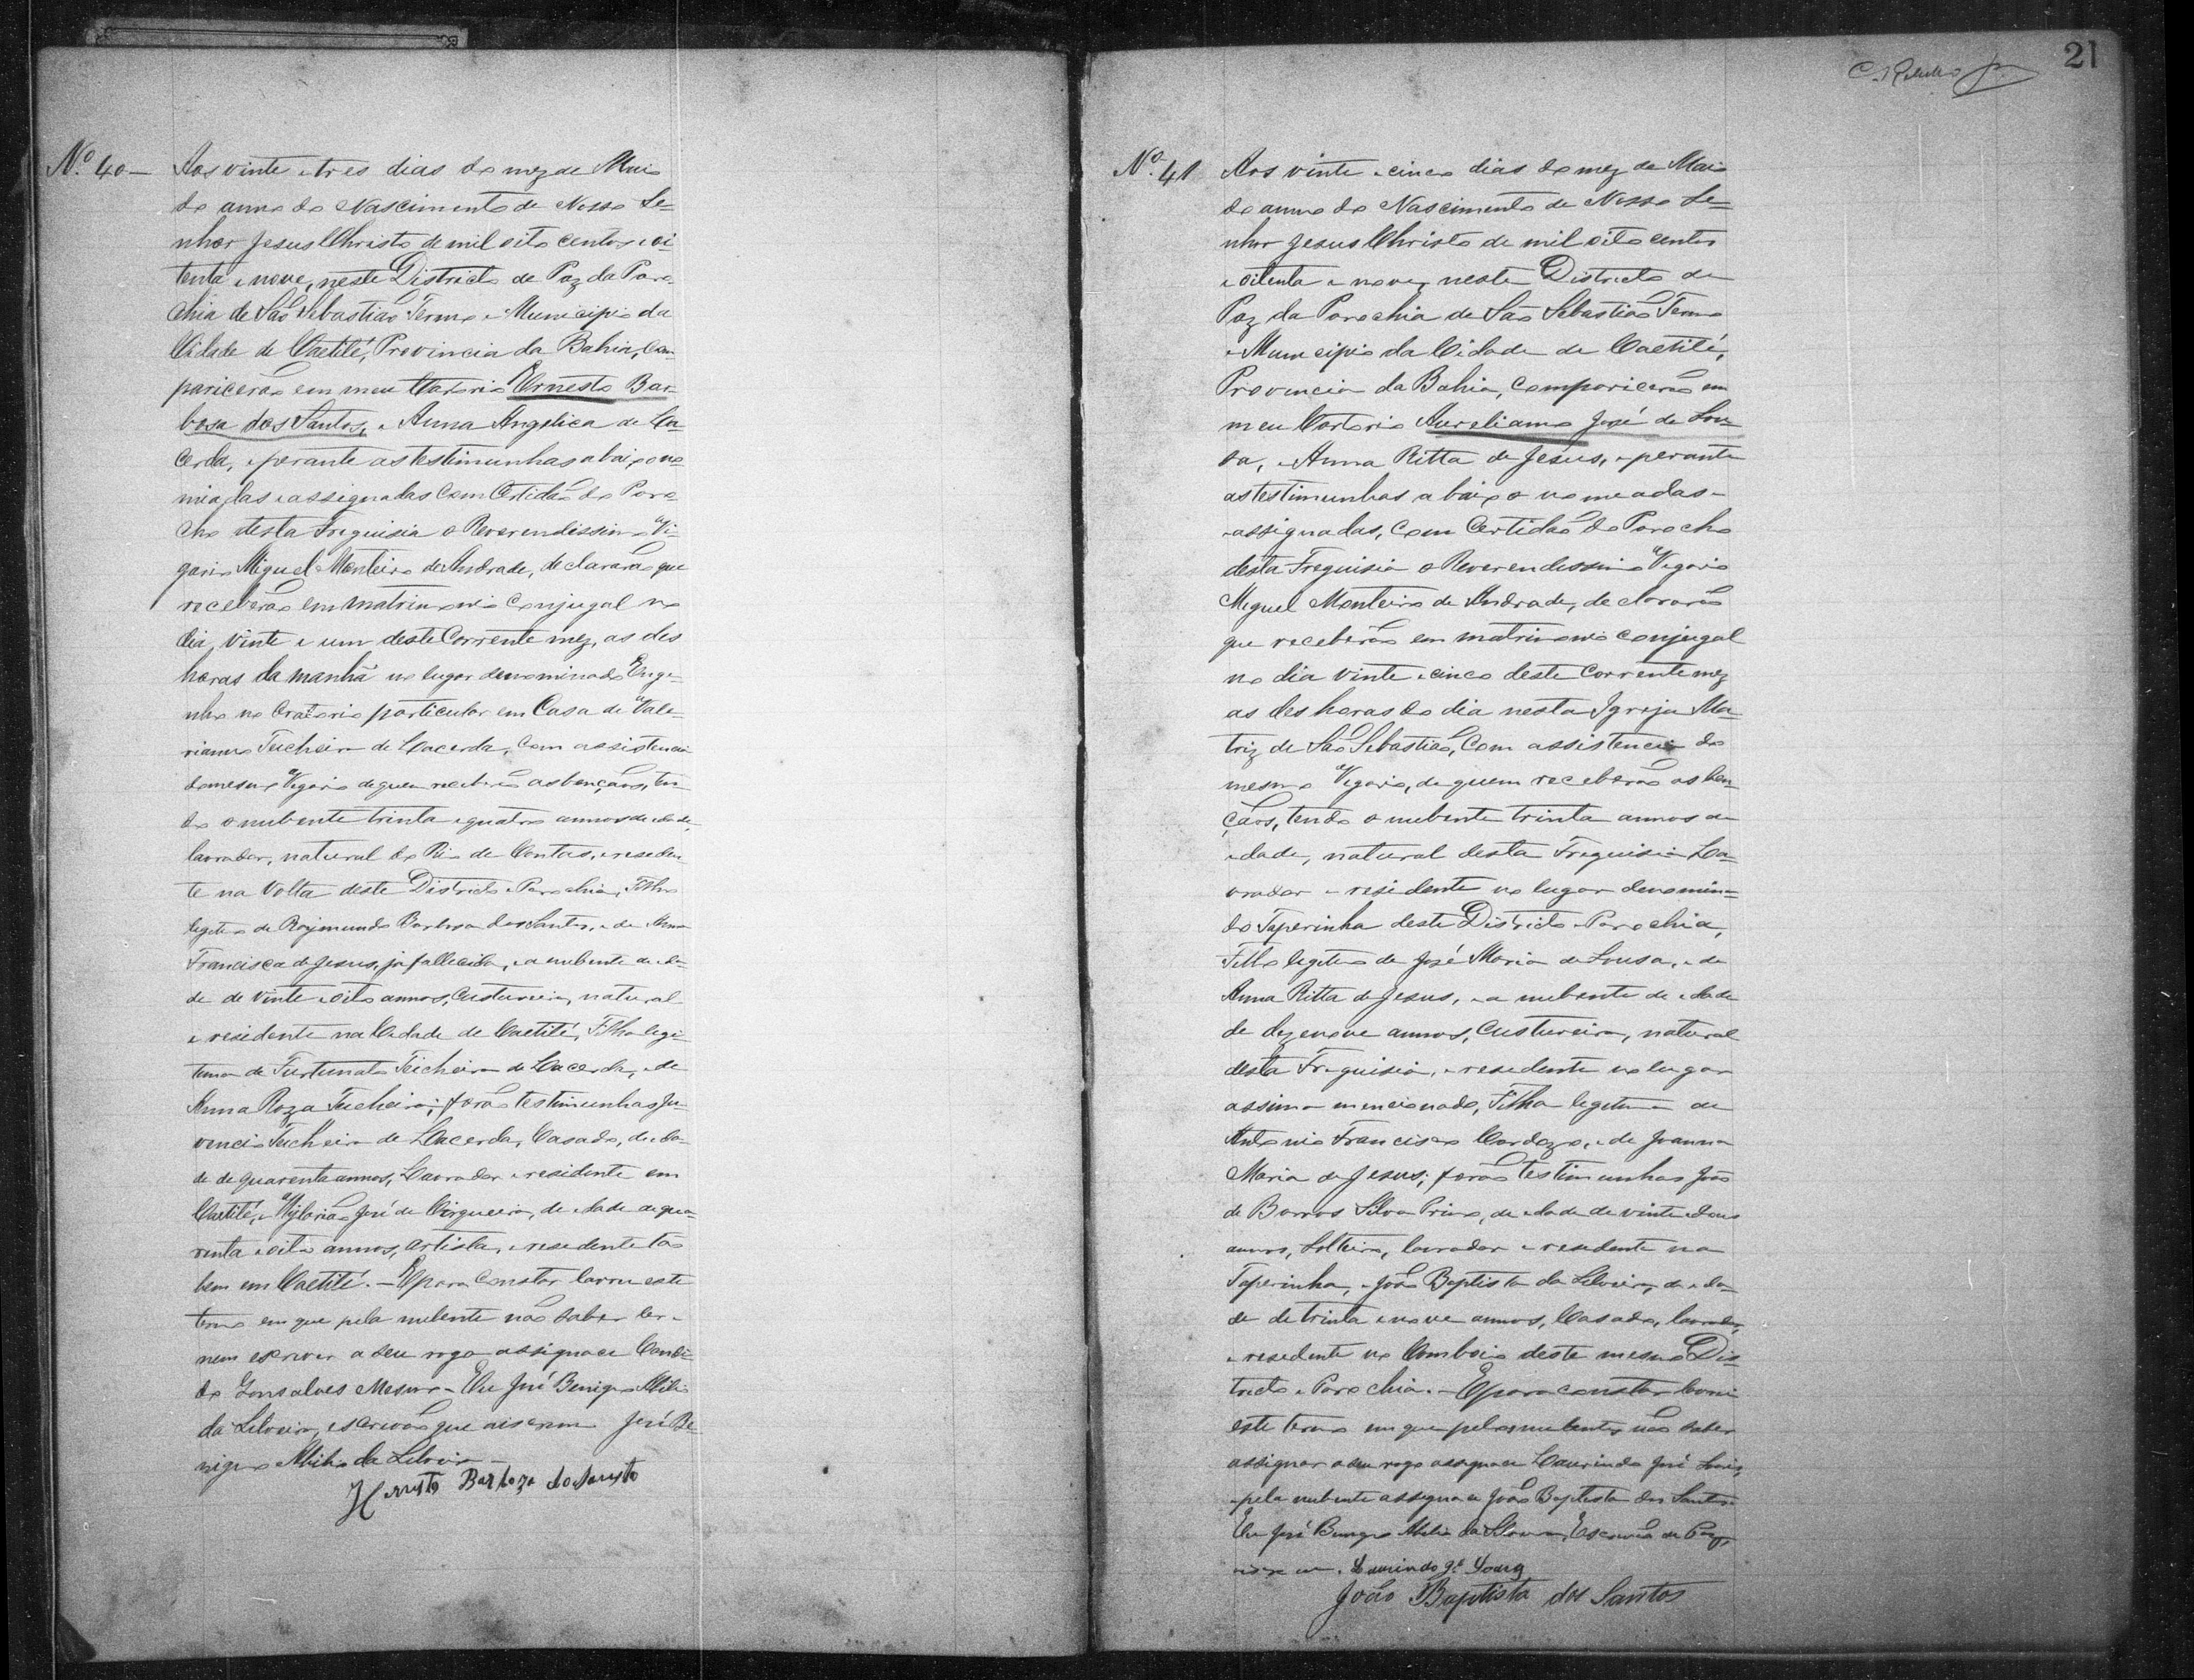 Nº 40 — Aos vinte e tres dias do mez de Maio
do anno do Nascimento de Nosso Se-
nhor Jesus Christo de mil oito centos e oi-
tenta e nove, neste Districto de Paz da Paro-
chia de São Sebastião Termo e Municipio da
Cidade de Caetité, Provincia da Bahia, com
pariceraõ em meu Cartorio Ernesto Bar-
bosa dos Santos, e Anna Angelica de La-
cerda, e perante as testimunhas abaixo no
miadas e assignadas com Certidaõ do Paro
cho desta Freguisia o Reverendissimo Vi-
gario Miguel Monteiro de Andrade, declararaõ que
receberaõ em matrimonio conjugal no
dia vinte e um deste Corrente mez, as des
horas da manhã no lugar denominado Enge-
nho no Oratorio particular em Casa de Vale-
rianno Teicheira de Lacerda, com assistencia
do mesmo Vigario de quem receberaõ as bençaõs, ten
do o nubente trinta e quatro annos de edade,
lavrador, natural do Rio de Contas, e residen
te na Volta deste Districto e Parochia, Filho
legitimo de Raymundo Barbosa dos Santos, e de Anna
Francisca de Jesus, já fallecida, e a nubente de eda-
de de vinte e oito annos, Custureira, natural
e residente na Cidade de Caetité, Filha legi-
tima de Furtunato Teicheira de Lacerda, e de
Anna Roza Teicheira; foraõ testimunhas Ju-
vencio Teicheira de Lacerda, Casado, de eda-
de de quarenta annos, Lavrador e residente em
Caetité, e José de Cirqueira, de edade de qua-
renta e oito annos, artista, e residente tão
bem em Caetité. — E para Constar lavrei este
termo em que pela nubente não saber ler e
nem escrever a seu rogo assignace Candi-
do Gonsalves Mesmo — Eu José Benigno Abilio
da Silveira, escrivaõ que o escrevi José Be-
nigno Abilio da Silveira —
Hernesto Barboza do Santo
C. Ribeiro Jr. 21
Nº 41 Aos vinte e cinco dias do mez de Maio
do anno do Nascimento de Nosso Se-
nhor Jesus Christo de mil oito centos
e oitenta e nove, neste Districto de
Paz da Parochia de Saõ Sebastiaõ Termo
e Municipio da Cidade de Caetité,
Provincia da Bahia, Compariceraõ em
meu Cartorio Aureliano José de Sou-
sa, e Anna Ritta de Jesus, e perante
as testimunhas abaixo nomeadas e
assignadas, com Certidaõ do Parocho
desta Freguisia o Reverendissimo Vigario
Miguel Monteiro de Andrade, declararaõ
que receberaõ em matrimonio conjugal
no dia vinte e cinco deste corrente mez
as des horas do dia nesta Igreja Ma-
triz de Saõ Sebastiaõ, com assistencia do
mesmo Vigario, de quem receberaõ as ben-
çaõs, tendo o nubente trinta annos de
edade, natural desta Freguisia La-
vrador e residente no lugar denomina-
do Taperinha deste Districto e Parochia,
Filho legitimo de José Maria de Sousa, e de
Anna Ritta de Jesus, e a nubente de edade
de dezenove annos, Custureira, natural
desta Freguisia, e residente no lugar
assima mencionado, Filha legitima de
Antonio Francisco Cardozo, e de Joanna
Maria de Jesus; foraõ testimunhas João
de Barros Silva Primo, de edade de vinte e dous
annos, Solteiro, lavrador e residente na
Taperinha, e João Baptista da Silveira, de eda-
de de trinta e nove annos, Casado, lavrador,
e residente no Comboio deste mesmo Dis-
tricto e Parochia. — E para constar lavrei
este termo em que pelos nubentes não saber
assignar a seu rogo assignace Laurindo José Souza,
e pela nubente assignace João Baptista dos Santos.
Eu José Benigno Abilio da Silveira, Escrivaõ de Paz,
o escrevi. Laurindo Jé Souza
João Baptista dos Santos